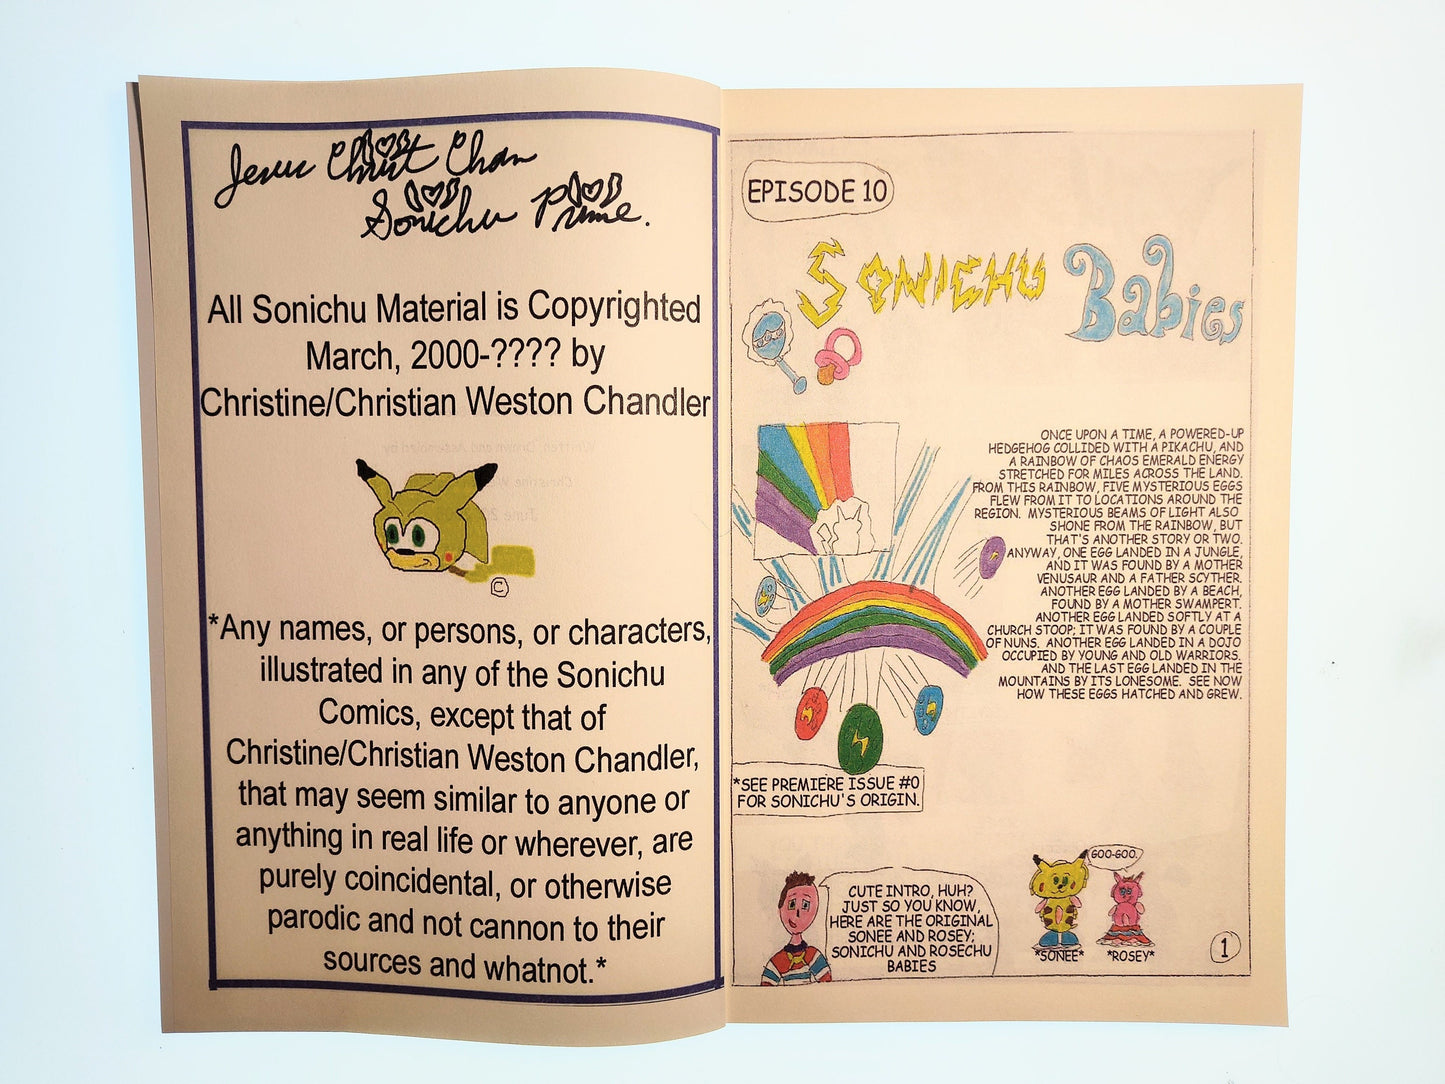 Jesus Christ Chan
Sonichu Prime.
All Sonichu Material is Copyrighted
March, 2000-???? by
Christine/Christian Weston Chandler
©
*Any names, or persons, or characters,
illustrated in any of the Sonichu
Comics, except that of
Christine/Christian Weston Chandler,
that may seem similar to anyone or
anything in real life or wherever, are
purely coincidental, or otherwise
parodic and not cannon to their
sources and whatnot.*
EPISODE 10
SONICHU Babies
ONCE UPON A TIME, A POWERED-UP
HEDGEHOG COLLIDED WITH A PIKACHU, AND
A RAINBOW OF CHAOS EMERALD ENERGY
STRETCHED FOR MILES ACROSS THE LAND.
FROM THIS RAINBOW, FIVE MYSTERIOUS EGGS
FLEW FROM IT TO LOCATIONS AROUND THE
REGION. MYSTERIOUS BEAMS OF LIGHT ALSO
SHONE FROM THE RAINBOW, BUT
THAT'S ANOTHER STORY OR TWO.
ANYWAY, ONE EGG LANDED IN A JUNGLE,
AND IT WAS FOUND BY A MOTHER
VENUSAUR AND A FATHER SCYTHER.
ANOTHER EGG LANDED BY A BEACH,
FOUND BY A MOTHER SWAMPERT.
ANOTHER EGG LANDED SOFTLY AT A
CHURCH STOOP; IT WAS FOUND BY A COUPLE
OF NUNS. ANOTHER EGG LANDED IN A DOJO
OCCUPIED BY YOUNG AND OLD WARRIORS.
AND THE LAST EGG LANDED IN THE
MOUNTAINS BY ITS LONESOME. SEE NOW
HOW THESE EGGS HATCHED AND GREW.
*SEE PREMIERE ISSUE #0
FOR SONICHU'S ORIGIN.
CUTE INTRO, HUH?
JUST SO YOU KNOW,
HERE ARE THE ORIGINAL
SONEE AND ROSEY;
SONICHU AND ROSECHU
BABIES
GOO-GOO.
*SONEE*
*ROSEY*
1